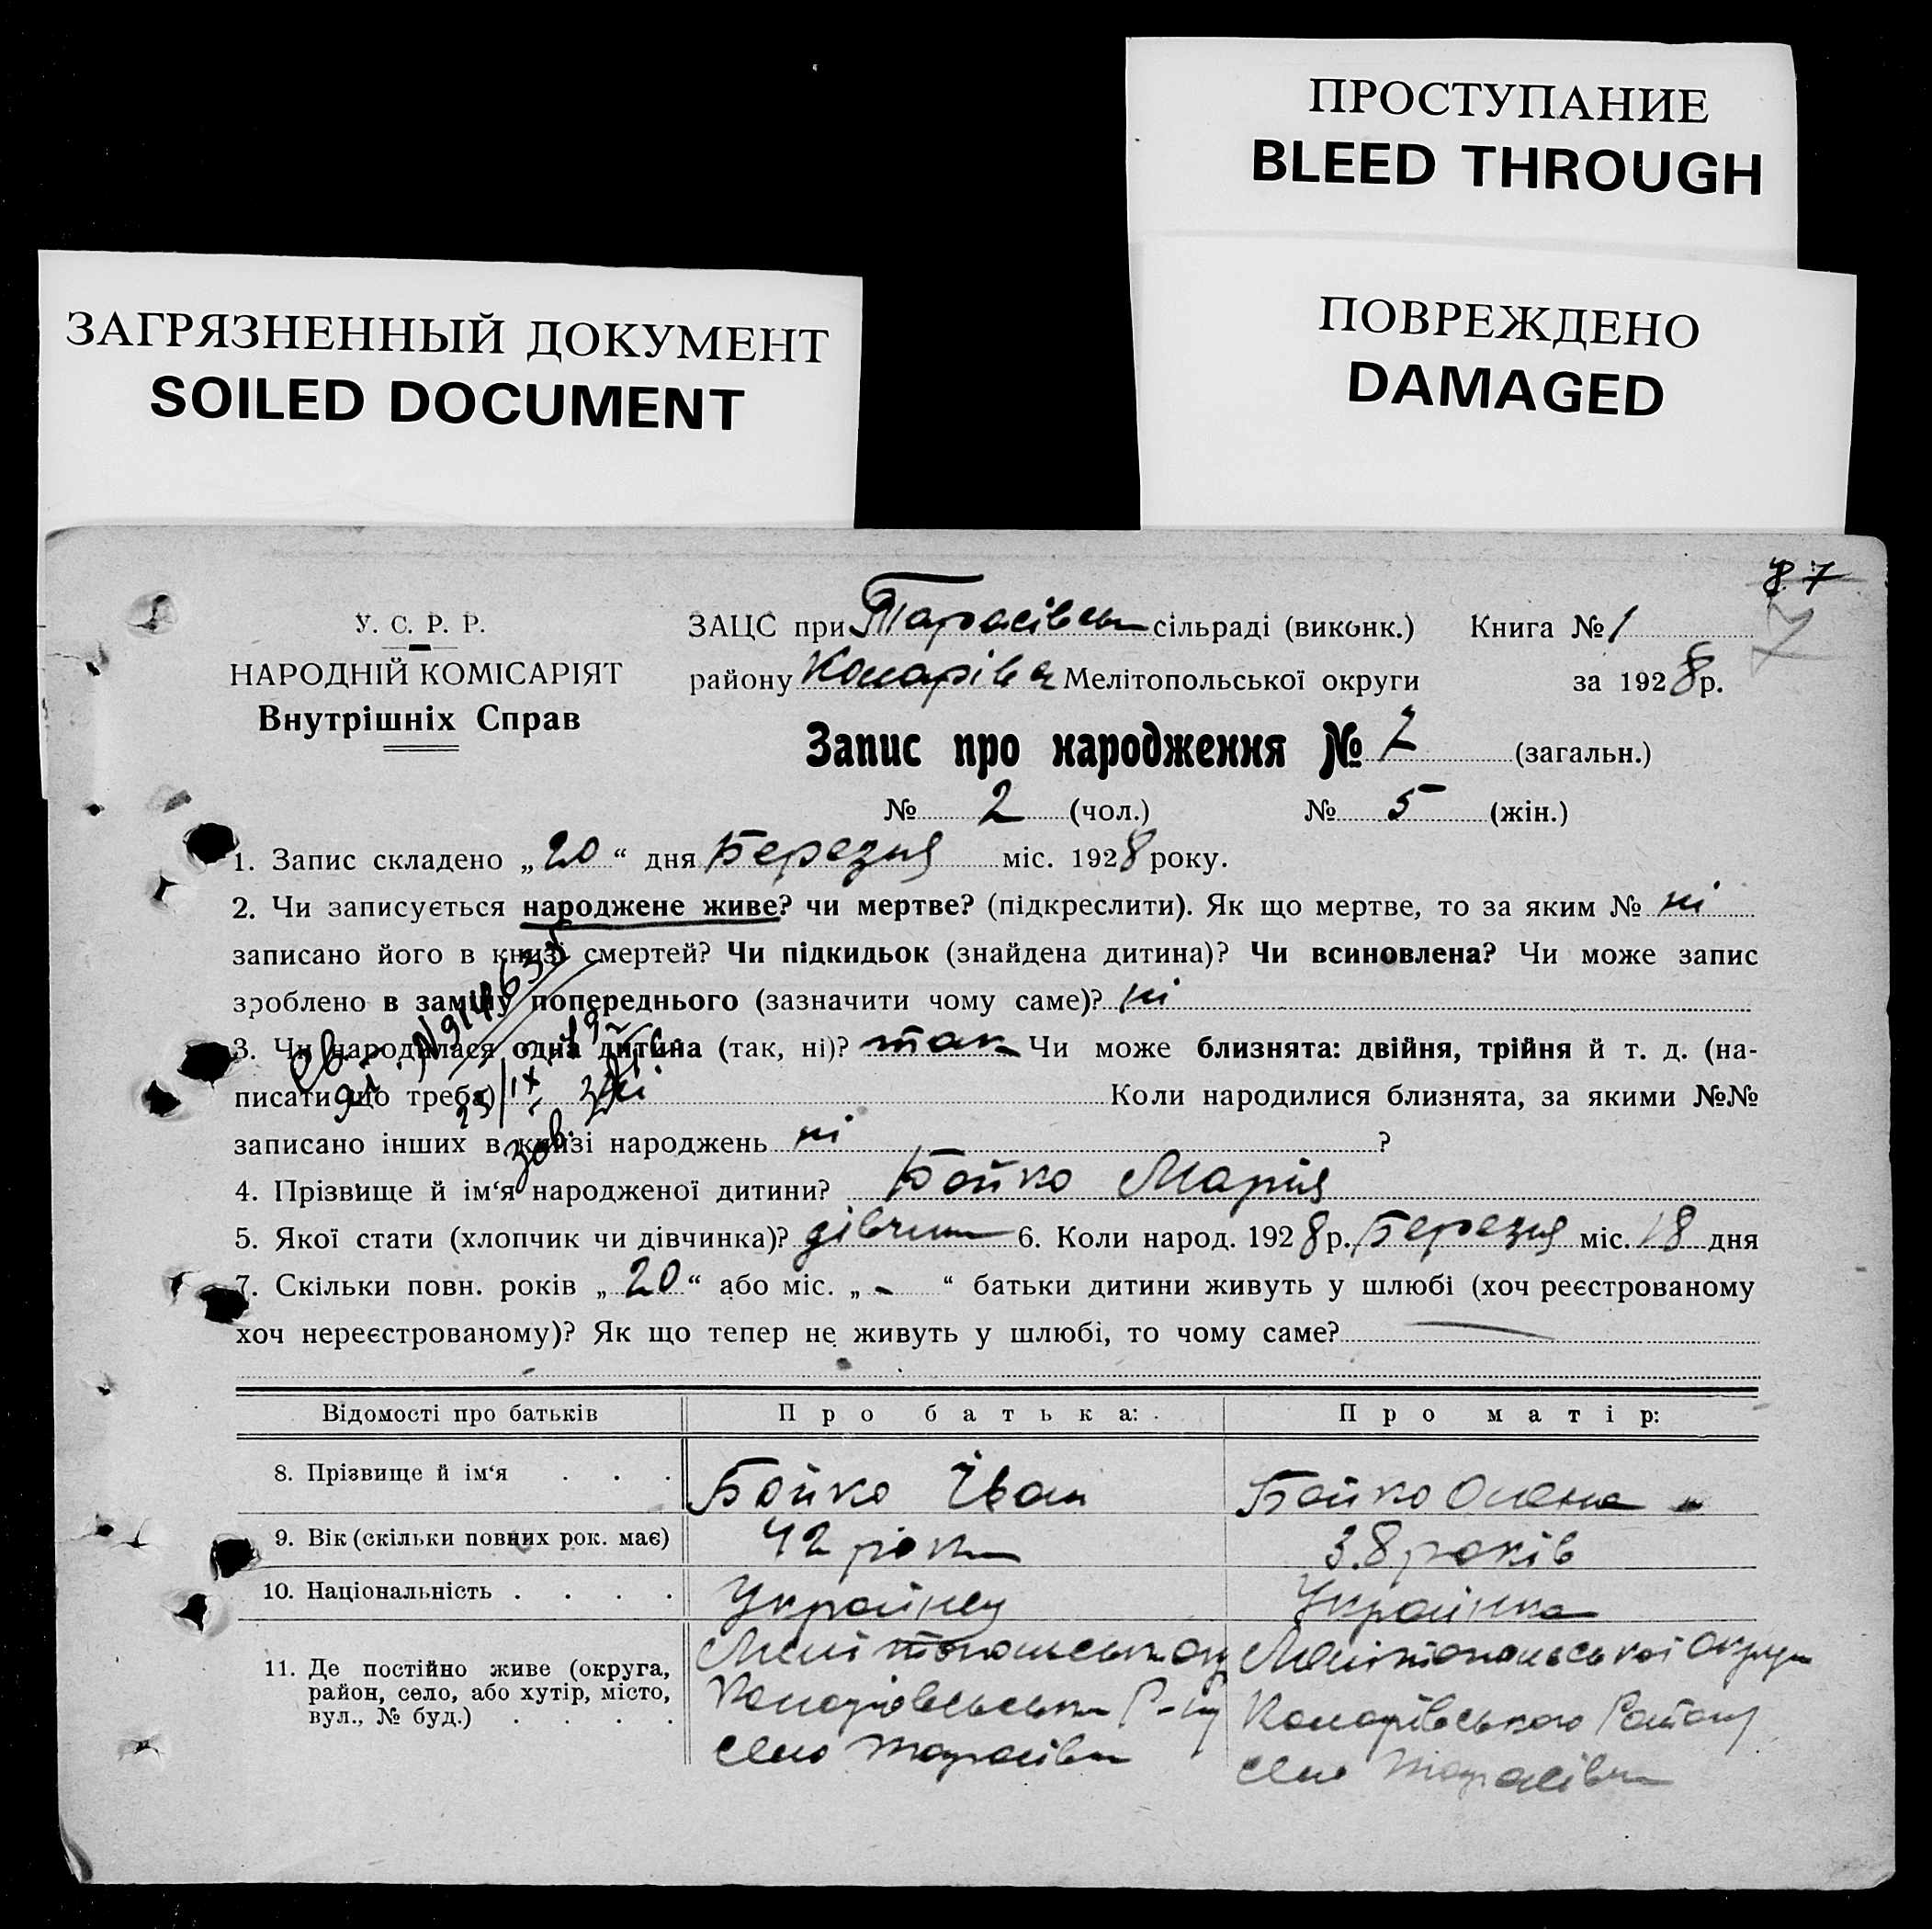 ПРОСТУПАНИЕ
BLEED THROUGH
ЗАГРЯЗНЕННЫЙ ДОКУМЕНТ
SOILED DOCUMENT
ПОВРЕЖДЕНО
DAMAGED
87
7
У. С. Р. Р.
НАРОДНІЙ КОМІСАРІЯТ
Внутрішніх Справ
ЗАЦС при Тарасівськ сільраді (виконк.) Книга № 1
району Комарівськ Мелітопольської округи за 1928 р.
Запис про народження № 7 (загальн.)
№ 2 (чол.) № 5 (жін.)
1. Запис складено „20“ дня Березня міс. 1928 року.
2. Чи записується народжене живе? чи мертве? (підкреслити). Як що мертве, то за яким № ні
записано його в книзі смертей? Чи підкидьок (знайдена дитина)? Чи всиновлена? Чи може запис
зроблено в заміну попереднього (зазначити чому саме)? ні
3. Чи народилася одна дитина (так, ні)? так Чи може близнята: двійня, трійня й т. д. (на-
писати що треба) ні Коли народилися близнята, за якими №№
записано інших в книзі народжень ні ?
4. Прізвище й ім‘я народженої дитини? Бойко Марія
5. Якої стати (хлопчик чи дівчинка)? дівчин 6. Коли народ. 1928 р. Березня міс. 18 дня
7. Скільки повн. років „20“ або міс. „-“ батьки дитини живуть у шлюбі (хоч реєстрованому
хоч нереєстрованому)? Як що тепер не живуть у шлюбі, то чому саме? —
Відомості про батьків Про батька: Про матір:
8. Прізвище й ім‘я . . . Бойко Іван Бойко Олена
9. Вік (скільки повних рок. має) 42 роки 38 років
10. Національність . . . . Українец Українка
11. Де постійно живе (округа, Мелітопольськ окр Мелітопольської Округи
район, село, або хутір, місто, Р-ну Району
вул., № буд.) . . . . село Тарасівка село Тарасівка